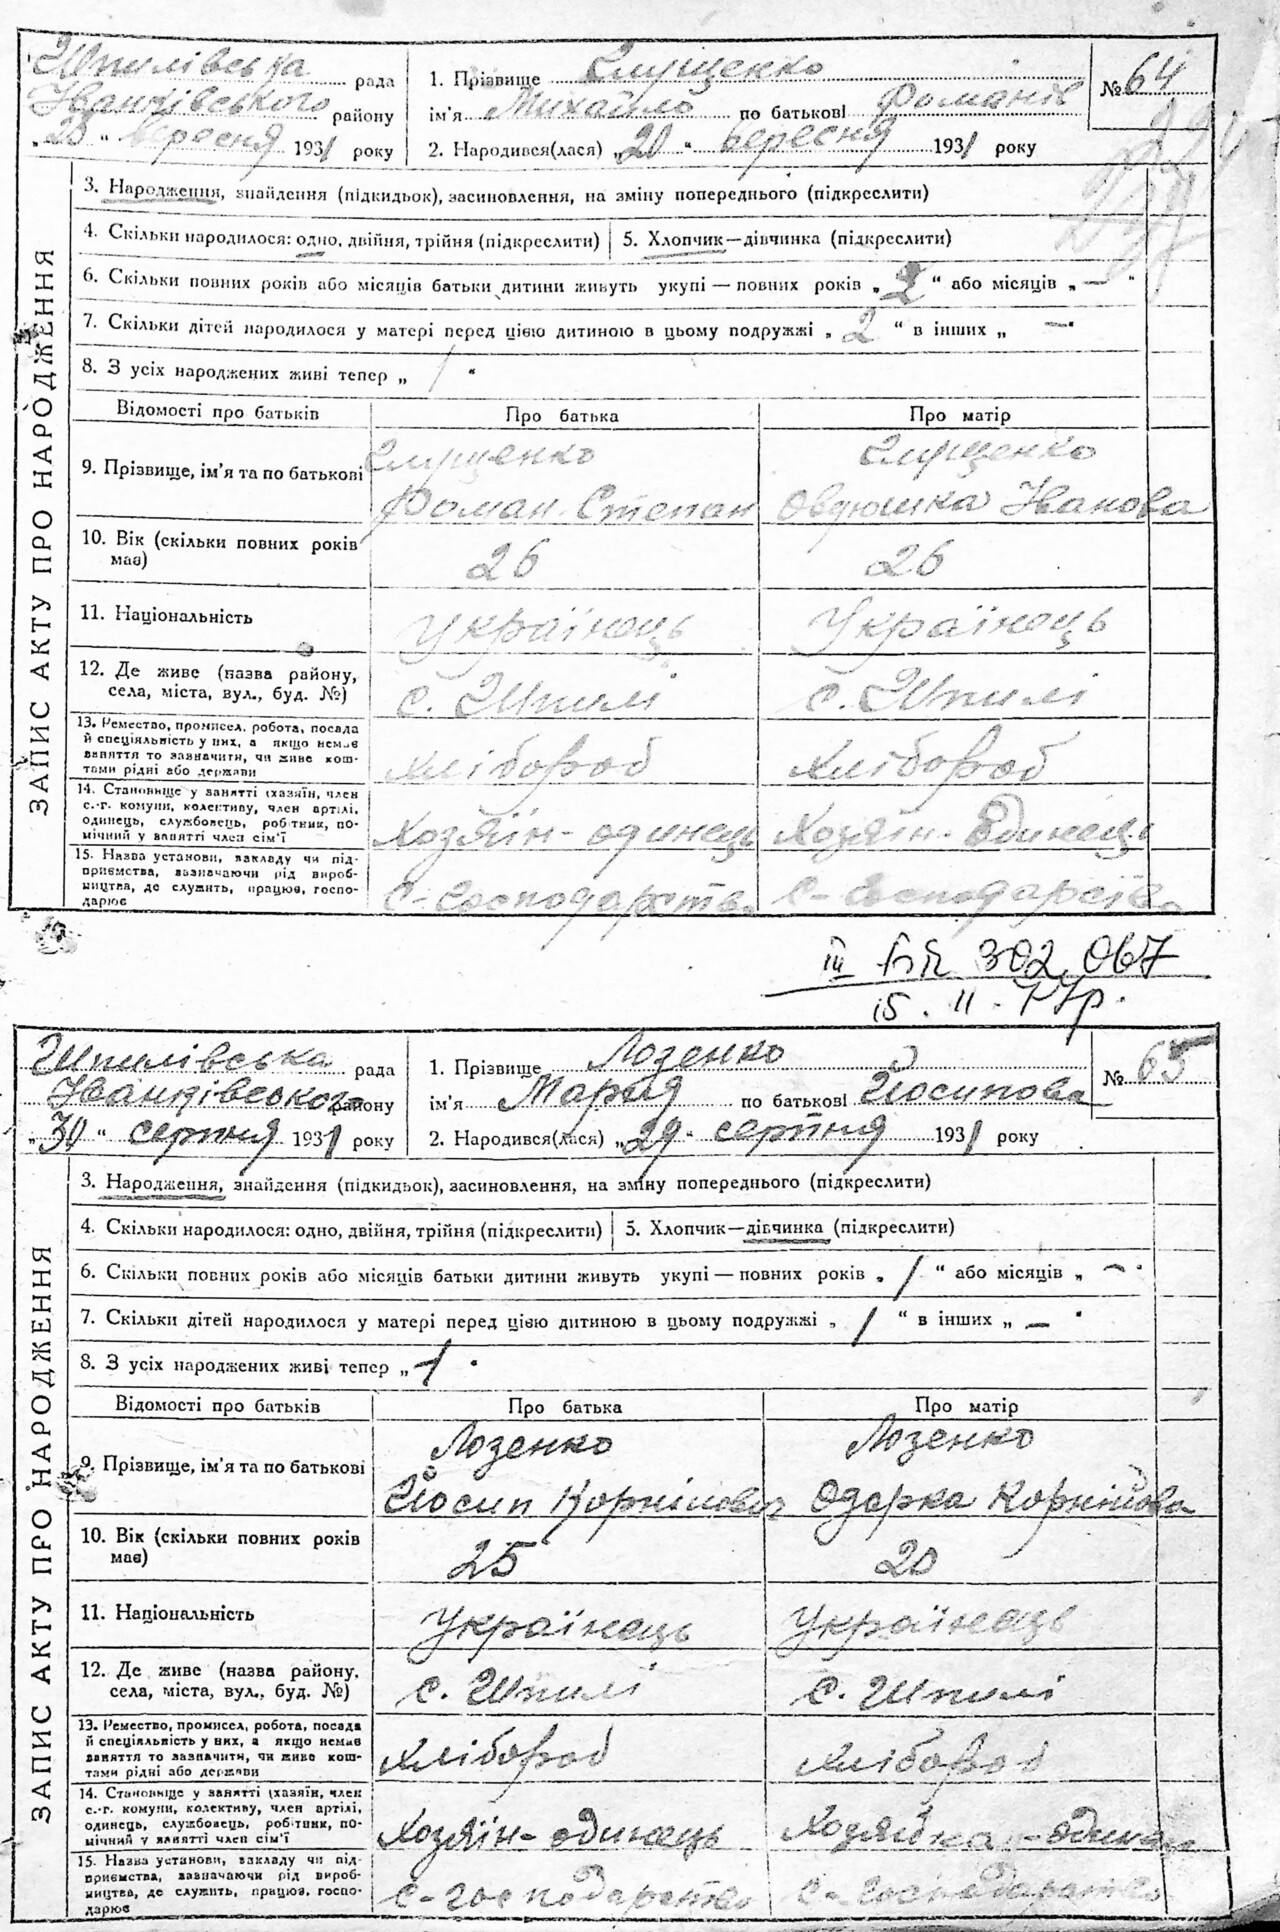 Шпилівська рада
Іванківського району
„20“ вересня 1931 року
1. Прізвище Глущенко
ім'я Михайло по батькові Романів
2. Народився(лася) „20“ вересня 1931 року
№ 64
ЗАПИС АКТУ ПРО НАРОДЖЕННЯ
3. Народження, знайдення (підкидьок), засиновлення, на зміну попереднього (підкреслити)
4. Скільки народилося: одно, двійня, трійня (підкреслити) 5. Хлопчик—дівчинка (підкреслити)
6. Скільки повних років або місяців батьки дитини живуть укупі — повних років „2“ або місяців „—“
7. Скільки дітей народилося у матері перед цією дитиною в цьому подружжі „2“ в інших „—“
8. З усіх народжених живі тепер „1“
Відомості про батьків Про батька Про матір
9. Прізвище, ім'я та по батькові
Глущенко
Роман Степан
Глущенко
Овдюшка Іванова
10. Вік (скільки повних років
має)
26 26
11. Національність Українець Українець
12. Де живе (назва району,
села, міста, вул., буд. №)
с. Шпилі с. Шпилі
13. Ремество, промисел, робота, посада
й спеціяльність у них, а якщо немає
заняття то зазначити, чи живе кош-
тами рідні або держави
Хлібороб Хлібороб
14. Становище у занятті (хазяїн, член
с.-г. комуни, колективу, член артілі,
одинець, службовець, робітник, по-
мічний у занятті член сім'ї
Хозяїн-одинець Хозяїн-Одинець
15. Назва установи, закладу чи під-
приємства, зазначаючи рід вироб-
ництва, де служить, працює, госпо-
дарює
С-Господарство С-Господарство
III БК 302067
15.II-
Шпилівська рада
Іванківського району
„30“ серпня 1931 року
1. Прізвище Лозенко
ім'я Мария по батькові Йосипова
2. Народився(лася) „29“ серпня 1931 року
№ 65
ЗАПИС АКТУ ПРО НАРОДЖЕННЯ
3. Народження, знайдення (підкидьок), засиновлення, на зміну попереднього (підкреслити)
4. Скільки народилося: одно, двійня, трійня (підкреслити) 5. Хлопчик—дівчинка (підкреслити)
6. Скільки повних років або місяців батьки дитини живуть укупі — повних років „1“ або місяців „—“
7. Скільки дітей народилося у матері перед цією дитиною в цьому подружжі „1“ в інших „—“
8. З усіх народжених живі тепер „1“
Відомості про батьків Про батька Про матір
9. Прізвище, ім'я та по батькові
Лозенко
Йосип Корнілович
Лозенко
Одарка Корнійова
10. Вік (скільки повних років
має)
25 20
11. Національність Українець Українець
12. Де живе (назва району,
села, міста, вул., буд. №)
с. Шпилі с. Шпилі
13. Ремество, промисел, робота, посада
й спеціяльність у них, а якщо немає
заняття то зазначити, чи живе кош-
тами рідні або держави
Хлібороб Хлібороб
14. Становище у занятті (хазяїн, член
с.-г. комуни, колективу, член артілі,
одинець, службовець, робітник, по-
мічний у занятті член сім'ї
Хозяїн-одинець Хозяйка-
15. Назва установи, закладу чи під-
приємства, зазначаючи рід вироб-
ництва, де служить, працює, госпо-
дарює
С-господарство С-Господарство